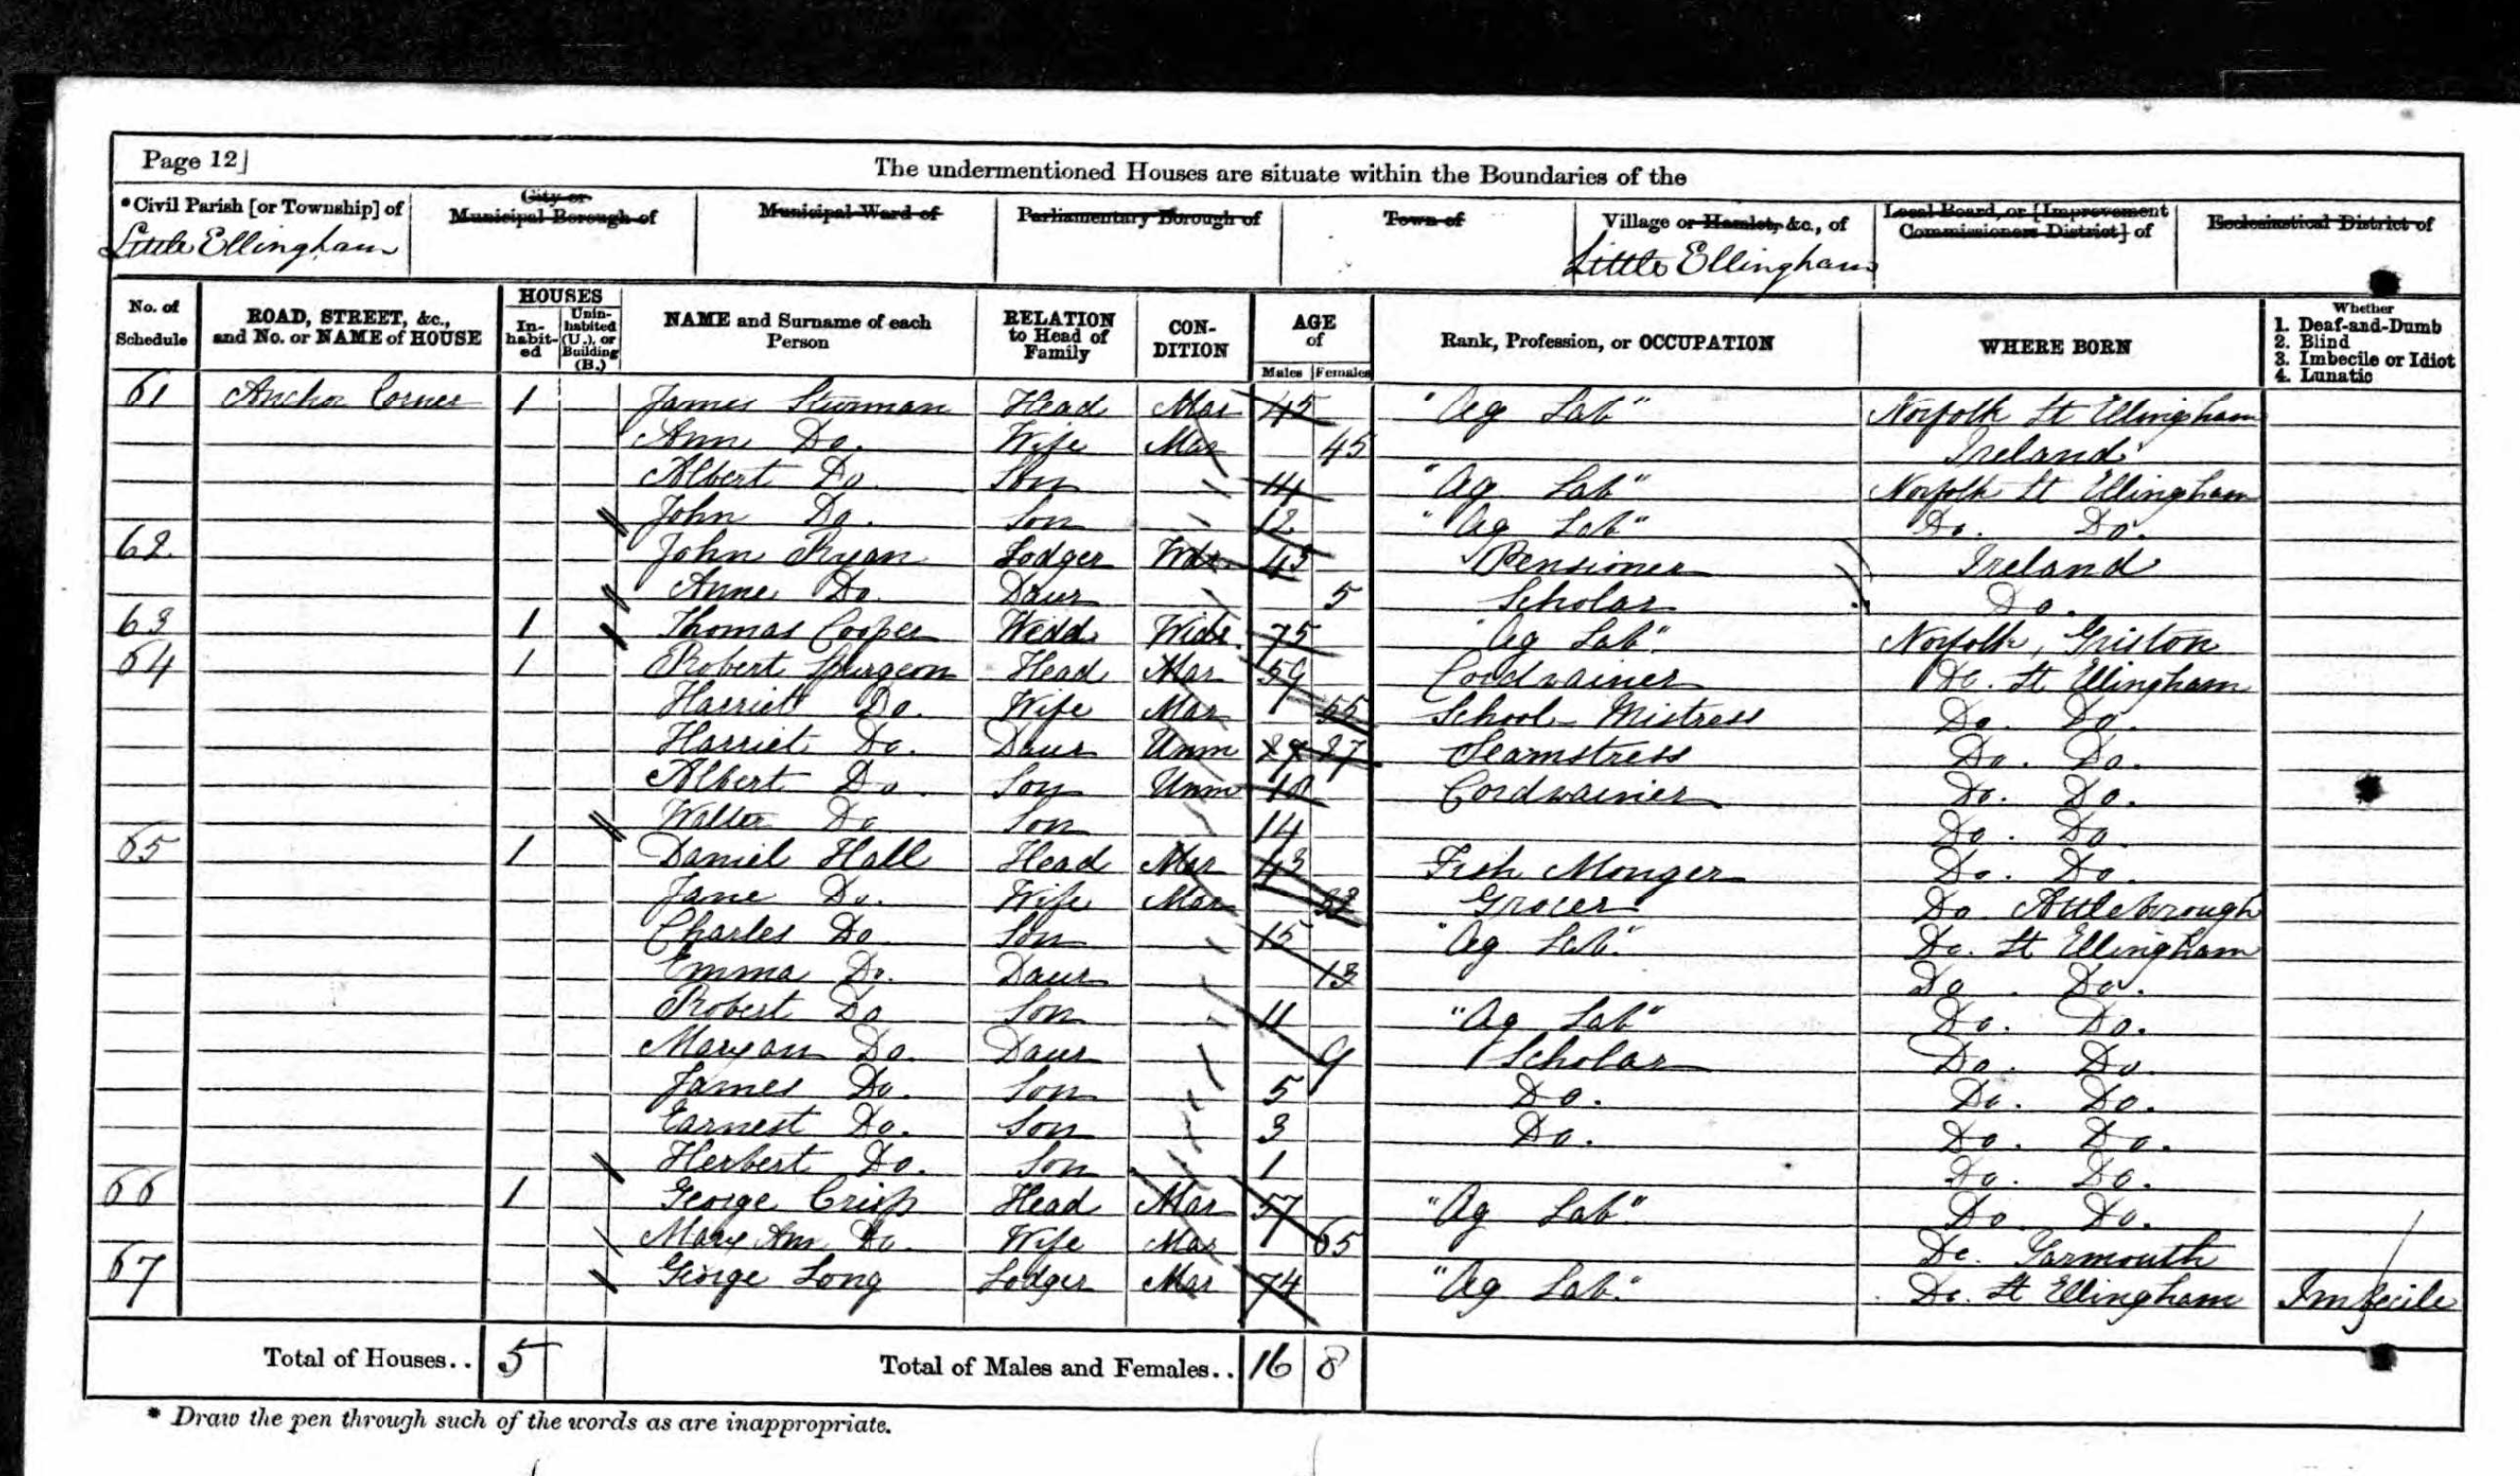 Page 12]
The undermentioned Houses are situate within the Boundaries of the
*Civil Parish [or Township] of City or Municipal Borough of Municipal Ward of Parliamentary Borough of Town of Village or Hamlet, &c., of Local Board, or [Improvement Commissioners District] of Ecclesiastical District of
Little Ellingham Little Ellingham
No. of Schedule ROAD, STREET, &c., and No. or NAME of HOUSE HOUSES In-habit-ed Unin-habited (U.), or Building (B.) NAME and Surname of each Person RELATION to Head of Family CON-DITION AGE of Males Females Rank, Profession, or OCCUPATION WHERE BORN Whether 1. Deaf-and-Dumb 2. Blind 3. Imbecile or Idiot 4. Lunatic
61 Anchor Corner 1 James Sturman Head Mar 45 "Ag Lab" Norfolk Lt Ellingham
Ann Do. Wife Mar 45 Ireland
Albert Do. Son 14 "Ag Lab" Norfolk Lt Ellingham
John Do. Son 12 "Ag Lab" Do. Do.
62 John Ryan Lodger Wdr 45 Pensioner Ireland
Anne Do. Daur 5 Scholar Do.
63 1 Thomas Cooper Widr. 75 "Ag Lab" Norfolk, Griston
64 1 Robert Spurgeon Head Mar 59 Cordwainer Do. Lt Ellingham
Harriet Do. Wife Mar 55 School Mistress Do. Do.
Harriet Do. Daur Unm 27 Seamstress Do. Do.
Albert Do. Son Unm Cordwainer Do. Do.
Walter Do Son 14 Do. Do.
65 1 Daniel Hall Head Mar 43 Fish Monger Do. Do.
Jane Do. Wife Mar Grocer Do Attleborough
Charles Do Son 15 "Ag Lab" Do. Lt Ellingham
Emma Do. Daur 13 Do. Do.
Robert Do Son 11 "Ag Lab" Do. Do.
Maryan Do. Daur 9 Scholar Do. Do.
James Do. Son 5 Do. Do. Do.
Earnest Do. Son 3 Do. Do. Do.
Herbert Do. Son 1 Do. Do.
66 1 George Crisp Head Mar 57 "Ag Lab" Do Do.
Mary Ann Do. Wife Mar 65 Do. Yarmouth
67 George Long Lodger Mar 74 "Ag Lab" Do. Lt Ellingham Imbecile
Total of Houses.. 5 Total of Males and Females.. 16 8
* Draw the pen through such of the words as are inappropriate.